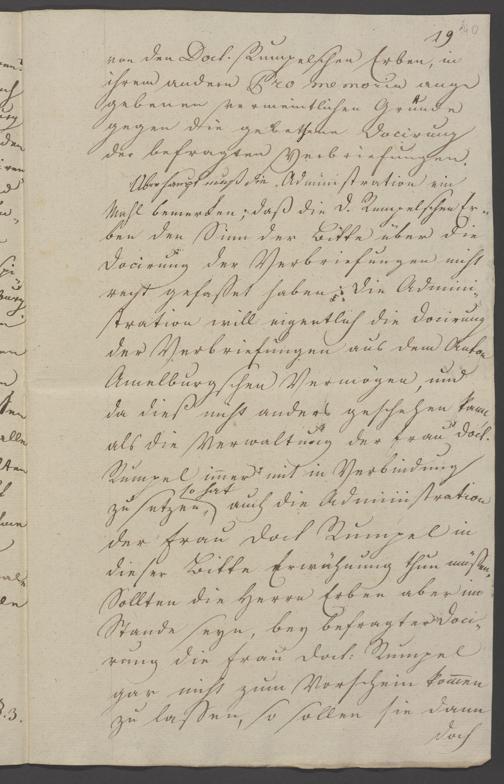 19
von den Doct. Rumpelschen Erben, in
ihrem andern Pro memoria ange
gebenen vermeintlichen Gründe
gegen die gebethene Docirung
der befragten Verbriefungen.
Überhaupt muß die Administration ein
Mahl bemerken; daß die D. Rumpelschen Er-
ben den Sinn der Bitte über die
Docirung der Verbriefungen nicht
recht gefasset haben: Die Admini-
stration will eigentlich die Docirung
der Verbriefungen aus dem Anton
Amelburgschen Vermögen, und
da dieß nicht anders geschehen kann
als die Verwaltung der Frau Doct.
Rumpel immer mit in Verbindung
zu setzen, so hat auch die Administration
der Frau Doct Rumpel in
dieser Bitte Erwähnung thun müssen.
Sollten die Herrn Erben aber im
Stande seyn, bey befragter Doci-
rung die Frau Doct: Rumpel
gar nicht zum Vorschein kommen
zu lassen, so sollen sie dann
doch